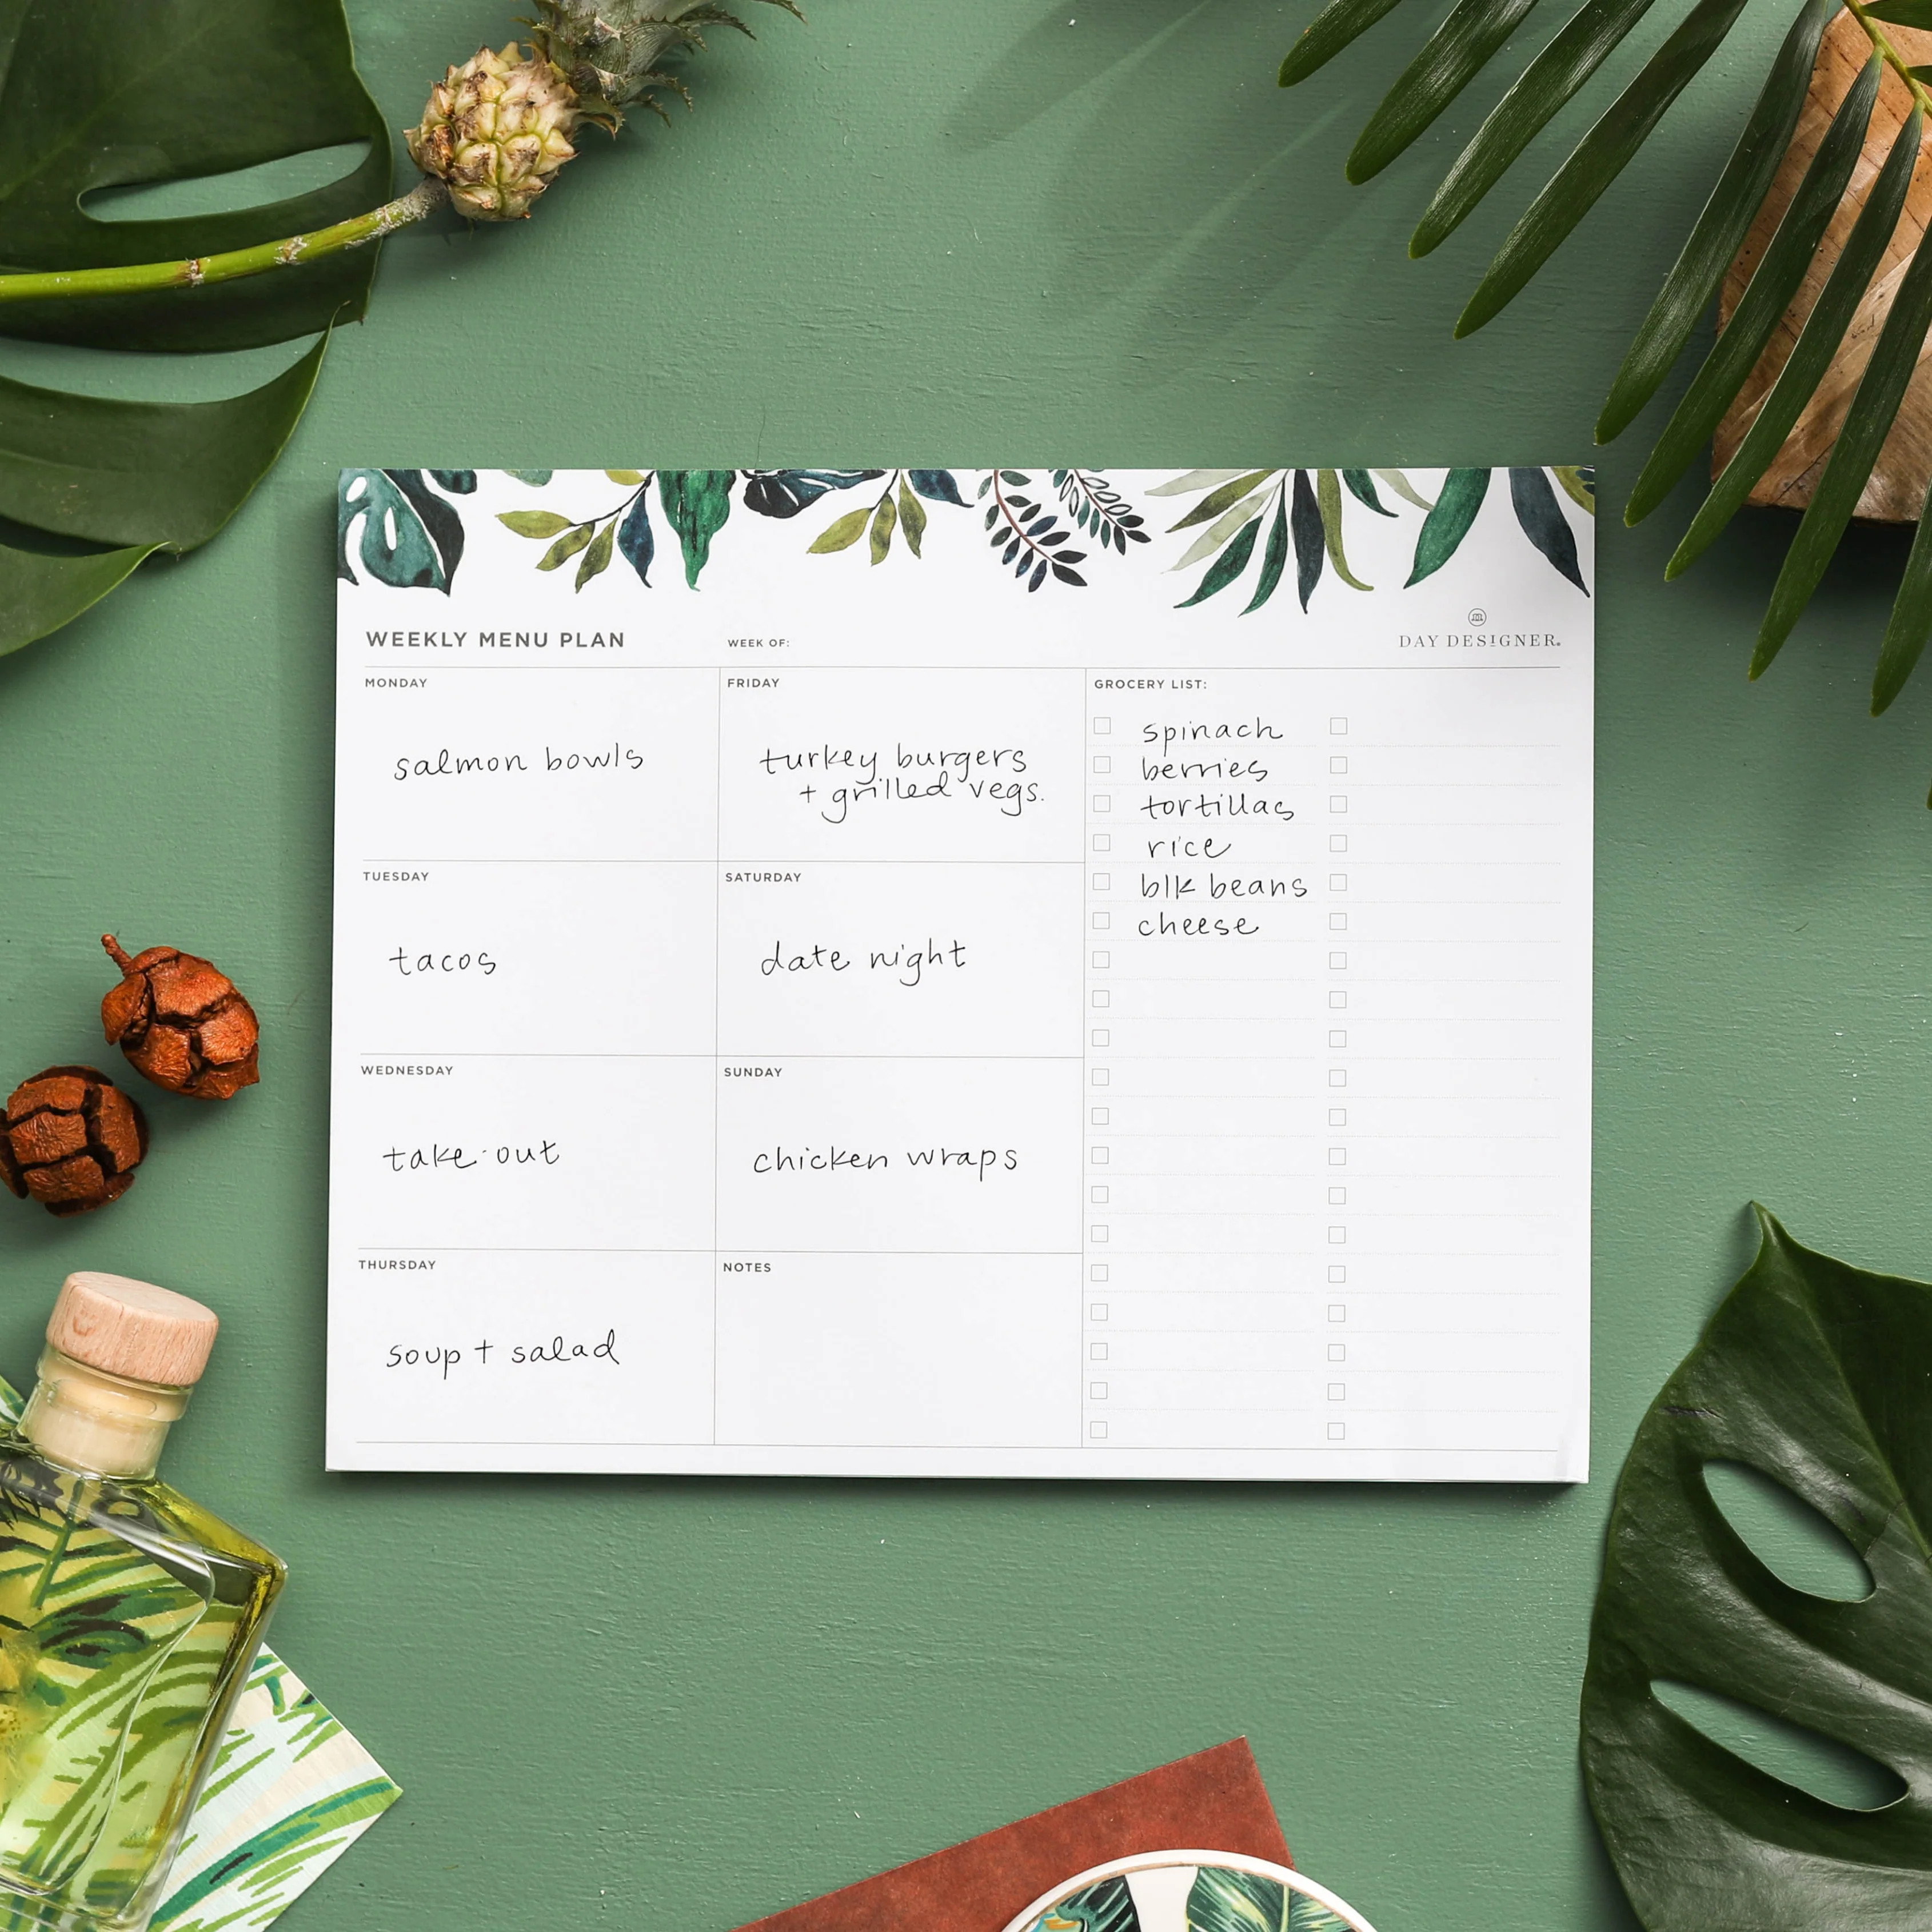 WEEKLY MENU PLAN
WEEK OF:
DAY DESIGNER®
MONDAY
salmon bowls
TUESDAY
tacos
WEDNESDAY
take-out
THURSDAY
soup + salad
FRIDAY
turkey burgers
+ grilled vegs.
SATURDAY
date night
SUNDAY
chicken wraps
NOTES
GROCERY LIST:
spinach
berries
tortillas
rice
blk beans
cheese